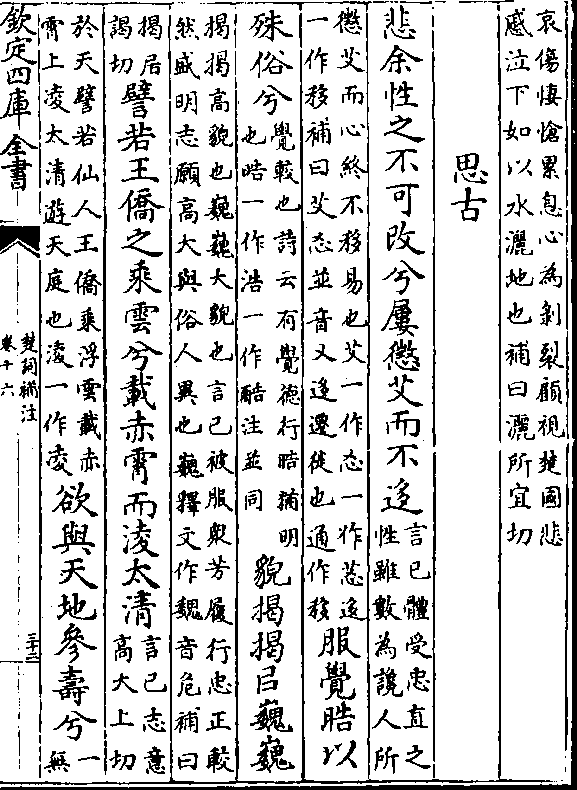 哀傷悽愴累息心為剝裂顧視楚國悲
慼泣下如以水灑地也補曰灑所宜切
思古
悲余性之不可改兮屢懲艾而不迻言己體受忠直之
性雖數為讒人所
懲艾而心終不移易也艾一作㣻一作苾迻
一作移補曰艾㣻並音乂迻遷徙也通作移服覺晧以
殊俗兮覺較也詩云有覺德行晧猶明
也晧一作浩一作酷注並同貌揭揭㠯巍巍
揭揭高貌也巍巍大貌也言己被服衆芳履行忠正較
然盛明志願高大與俗人異也巍釋文作魏音危補曰
揭居
謁切譬若王僑之乗雲兮載赤霄而淩太清言己志意
高大上切
於天譬若仙人王僑乗浮雲載赤
霄上淩太清遊天庭也淩一作凌欲與天地參壽兮一
無
欽定四庫全書
楚詞補注
卷十六
三十二